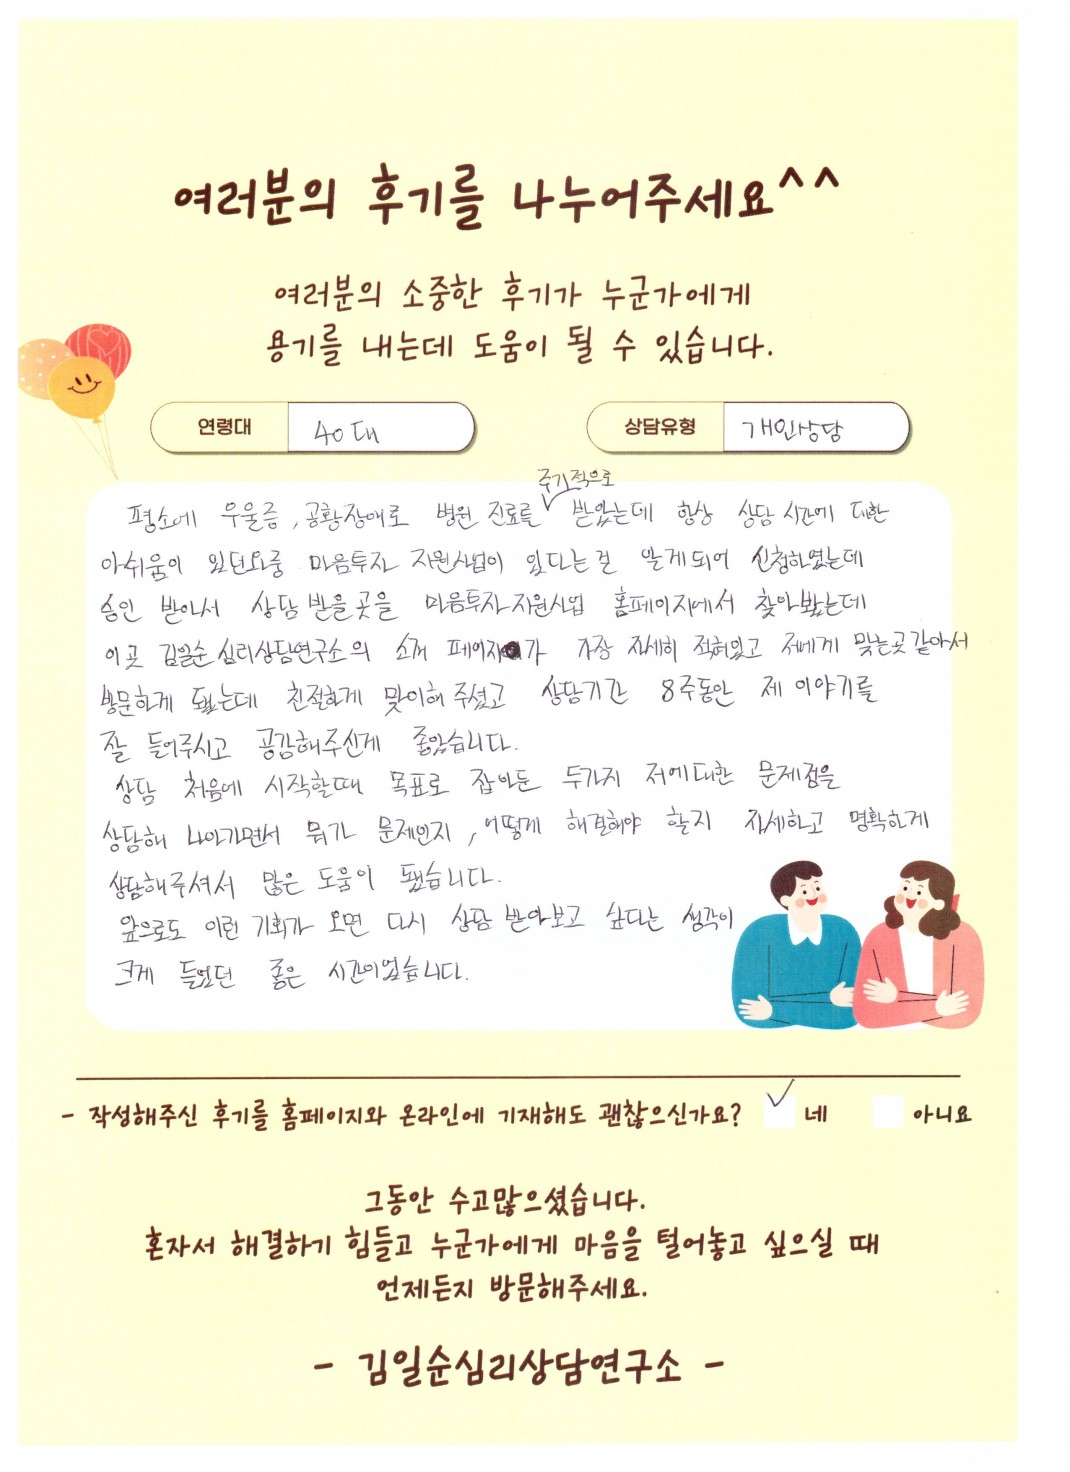 여러분의 후기를 나누어주세요^^
여러분의 소중한 후기가 누군가에게
용기를 내는데 도움이 될 수 있습니다.
연령대 40대 상담유형 개인상담
주기적으로
평소에 우울증, 공황장애로 병원 진료를 ✓ 받았는데 항상 상담 시간에 대한
아쉬움이 있던와중 마음투자 지원사업이 있다는걸 알게되어 신청하였는데
승인 받아서 상담 받을 곳을 마음투자 지원사업 홈페이지에서 찾아봤는데
이곳 김일순 심리상담연구소의 소개 페이지가 가장 자세히 적혀있고 저에게 맞는곳 같아서
방문하게 됐는데 친절하게 맞이해 주셨고 상담기간 8주동안 제 이야기를
잘 들어주시고 공감해주신게 좋았습니다.
상담 처음에 시작할때 목표로 잡아둔 두가지 저에대한 문제점을
상담해 나아가면서 뭐가 문제인지, 어떻게 해결해야 할지 자세하고 명확하게
상담해주셔서 많은 도움이 됐습니다.
앞으로도 이런 기회가 오면 다시 상담 받아보고 싶다는 생각이
크게 들었던 좋은 시간이었습니다.
- 작성해주신 후기를 홈페이지와 온라인에 기재해도 괜찮으신가요? ✓ 네 아니요
그동안 수고많으셨습니다.
혼자서 해결하기 힘들고 누군가에게 마음을 털어놓고 싶으실 때
언제든지 방문해주세요.
- 김일순심리상담연구소 -